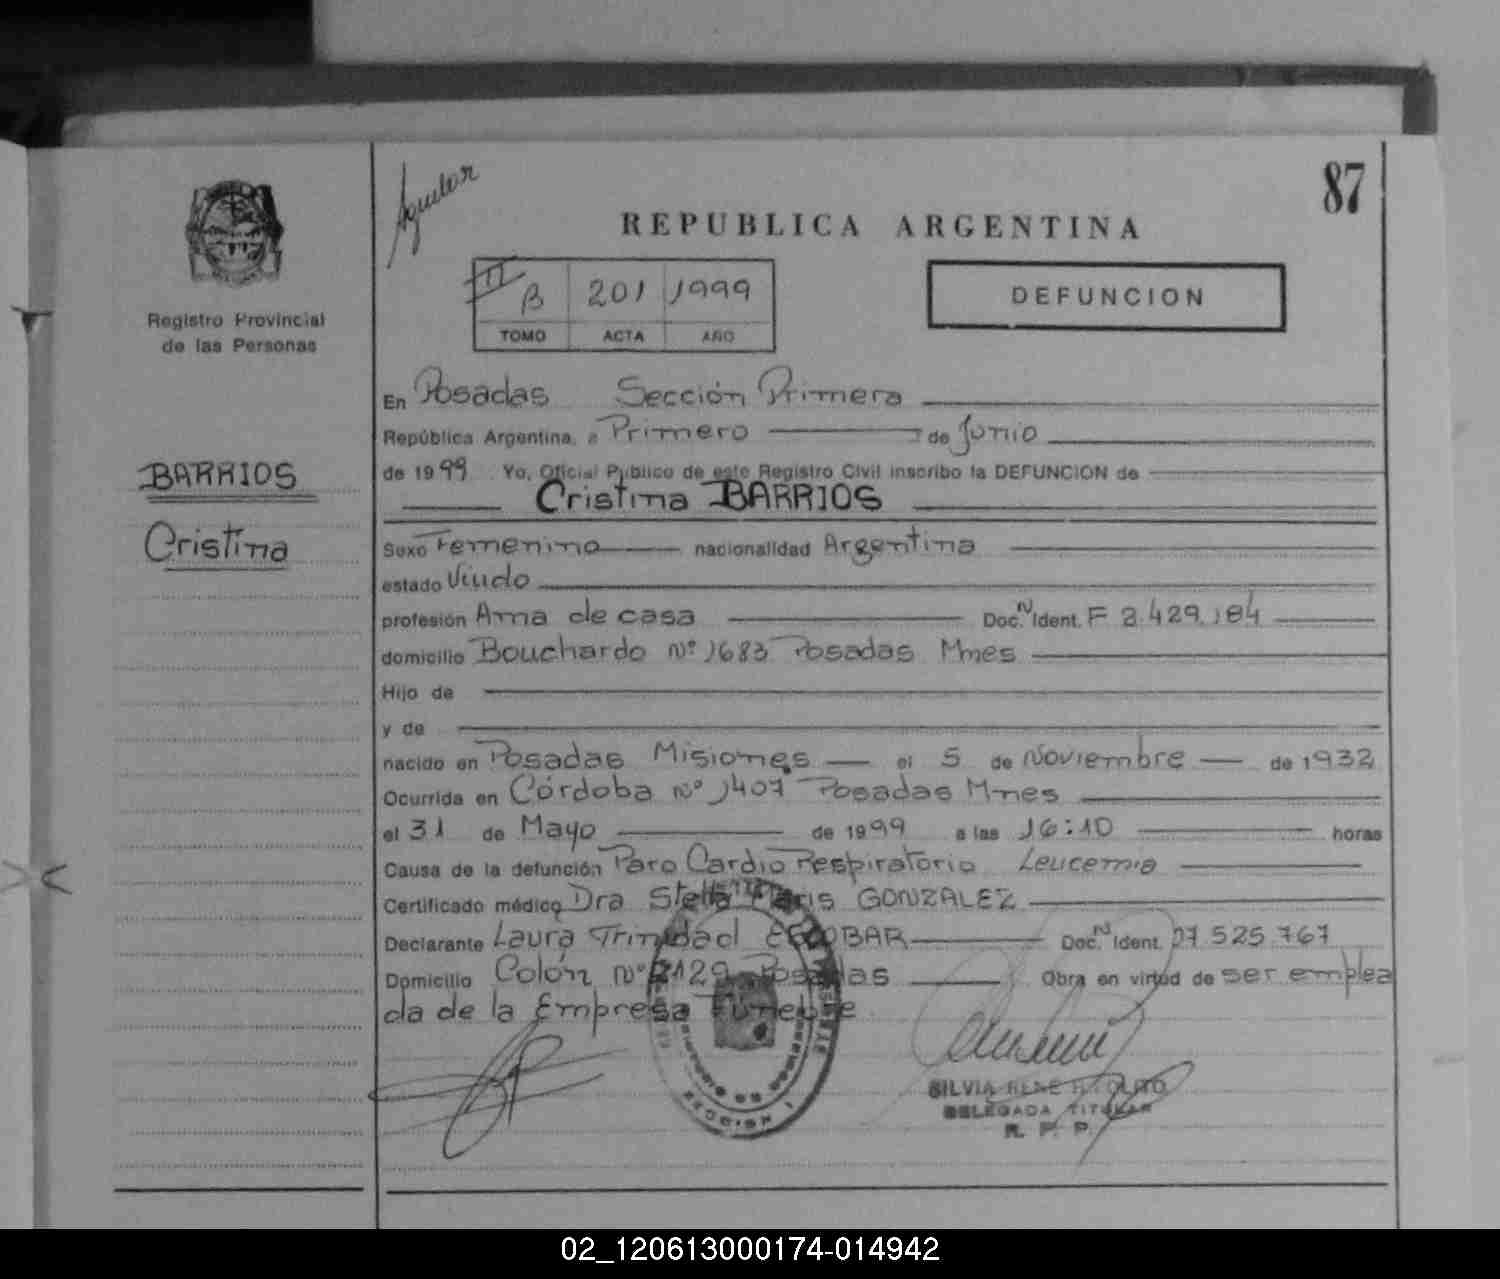 Aguilar
87
REPUBLICA ARGENTINA
Registro Provincial
de las Personas
II B 201 1999
TOMO ACTA AÑO
DEFUNCION
BARRIOS
Cristina
En Posadas Sección Primera
República Argentina, a Primero de Junio
de 1999 Yo, Oficial Público de este Registro Civil inscribo la DEFUNCION de
Cristina BARRIOS
Sexo Femenino nacionalidad Argentina
estado Viudo
profesión Ama de casa Doc. N Ident. F 2.429.184
domicilio Bouchardo Nº 1683 Posadas Mnes
Hijo de
y de
nacido en Posadas Misiones el 5 de Noviembre de 1932
Ocurrida en Córdoba Nº 1407 Posadas Mnes
el 31 de Mayo de 1999 a las 16:10 horas
Causa de la defunción Paro Cardio Respiratorio Leucemia
Certificado médico Dra Stella Maris GONZALEZ
Declarante Laura Trinidad ESCOBAR Doc. N Ident. 17.525.767
Domicilio Colón Nº 2129 Posadas Obra en virtud de ser emplea
da de la Empresa Fúnebre
SECCION 1
SILVIA RENE
DELEGADA TITULAR
R. P. P.
02_120613000174-014942